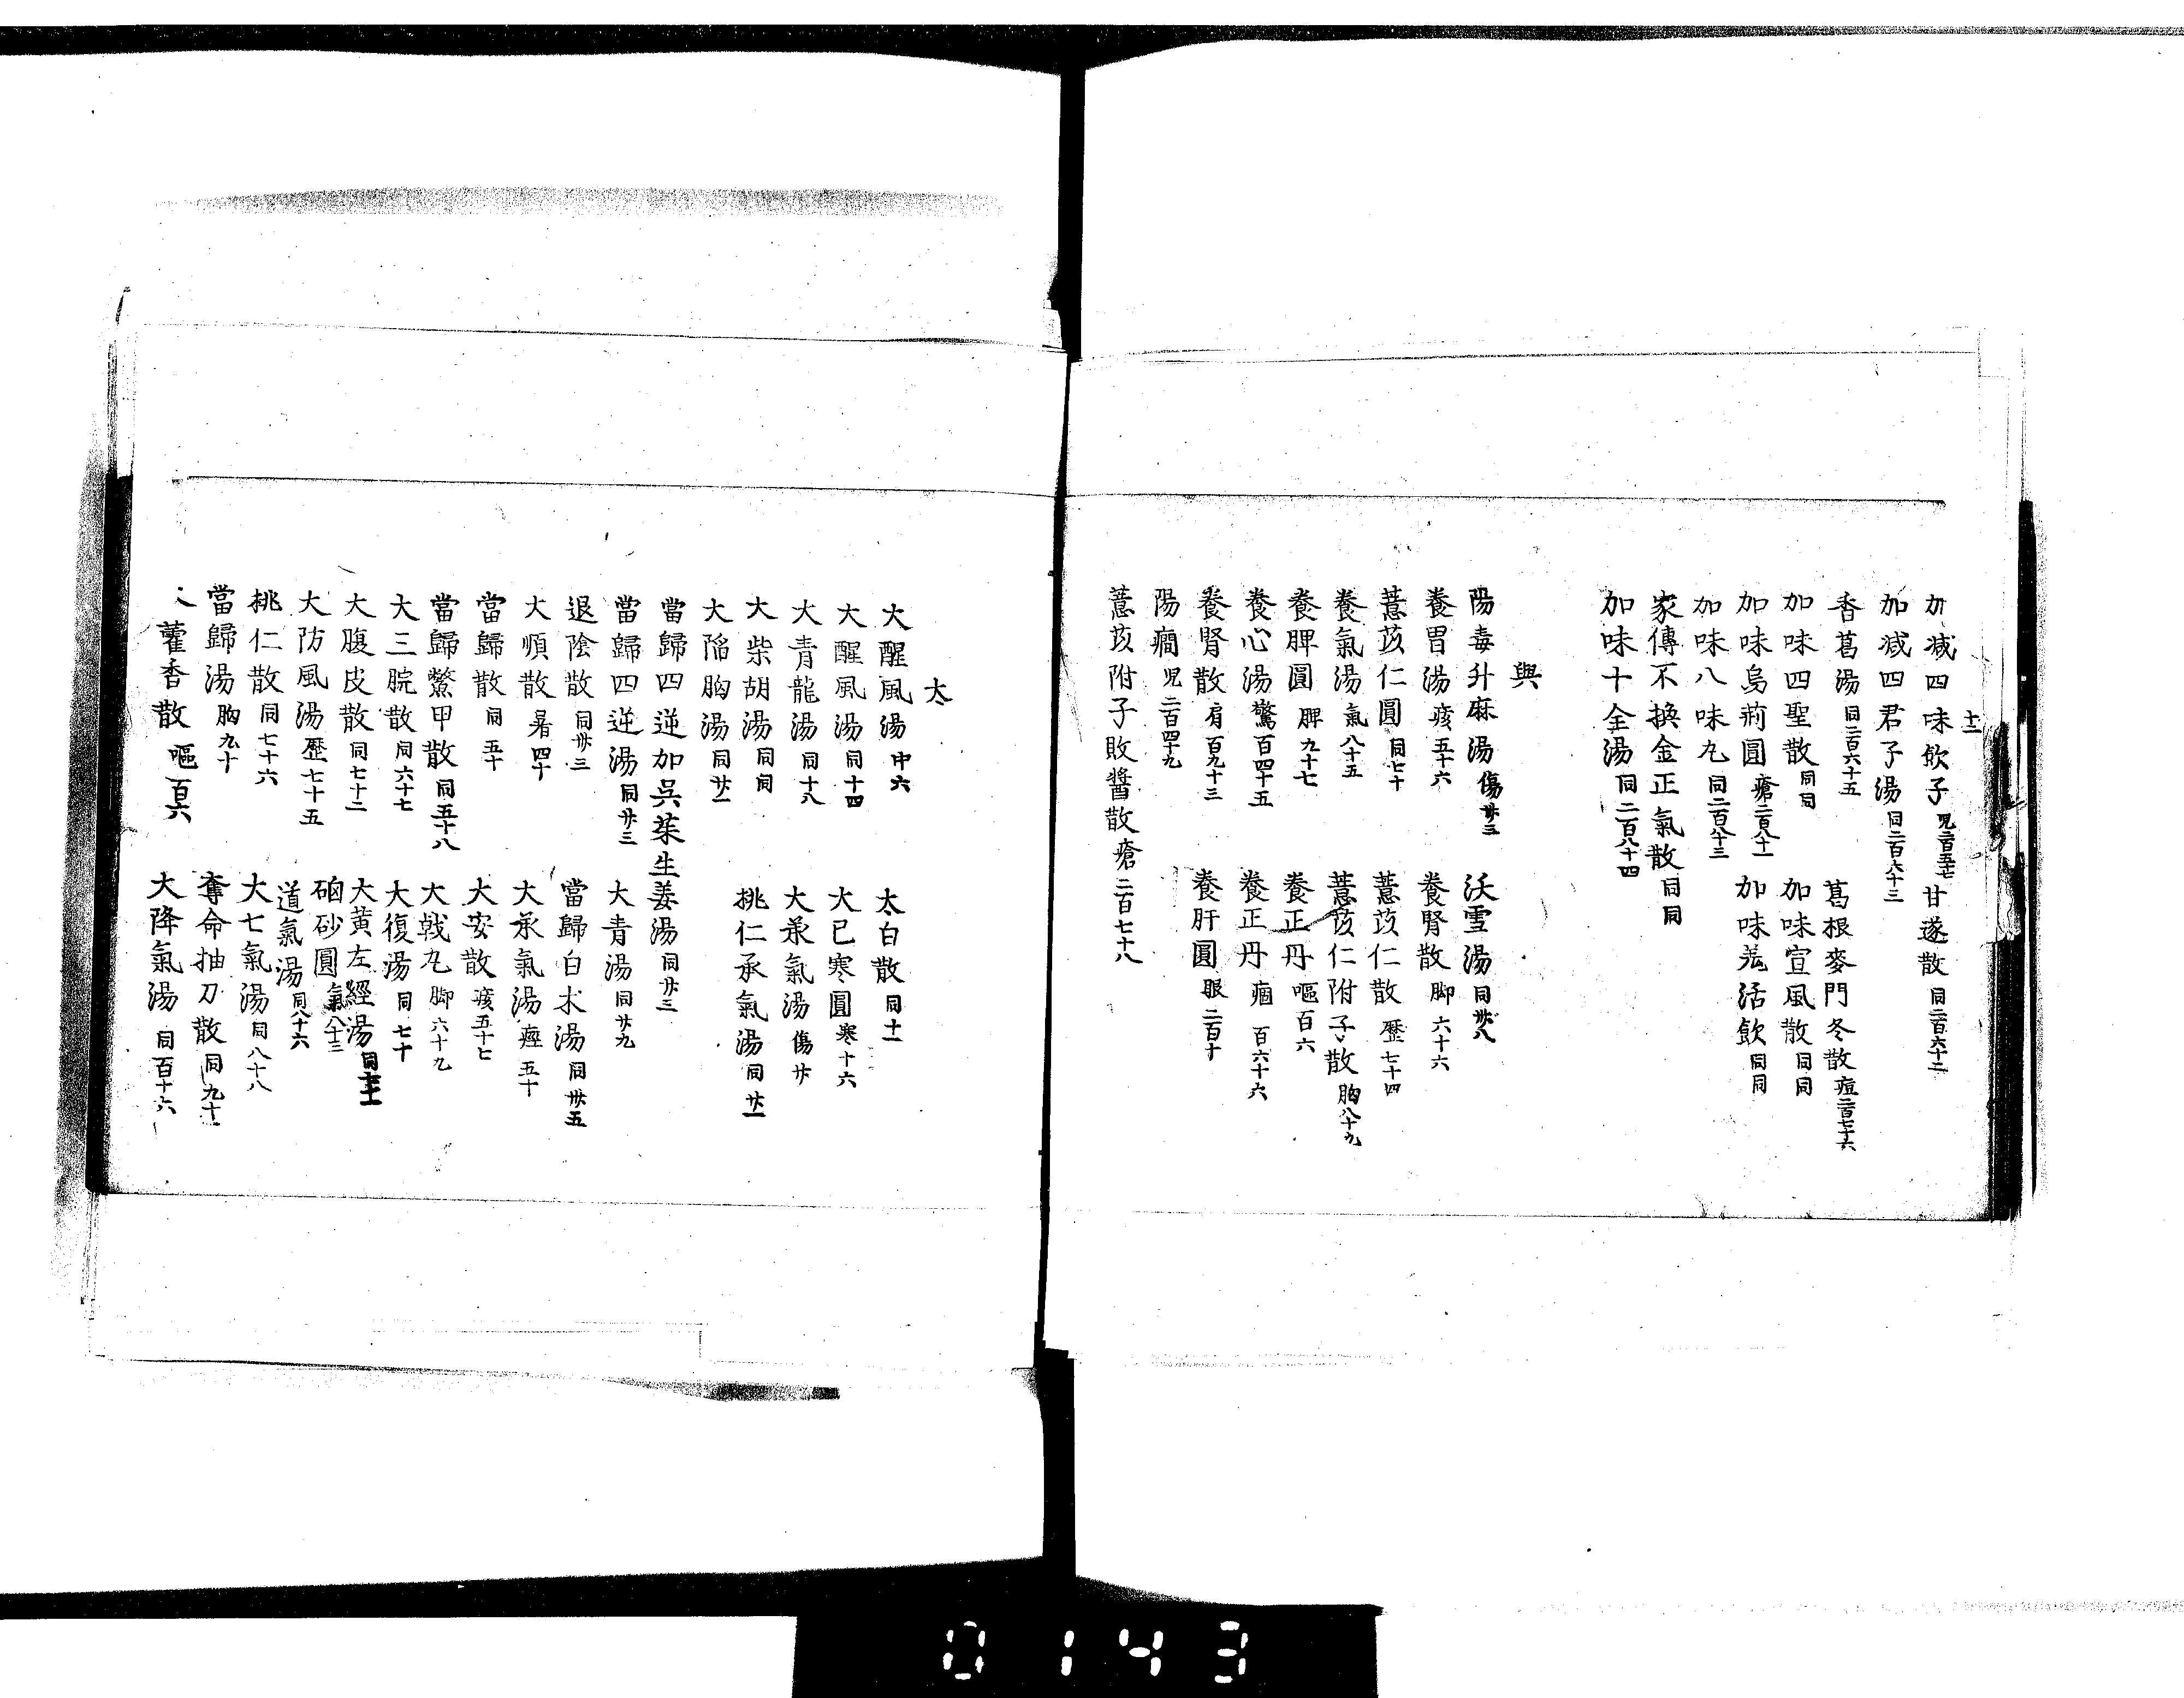 十二
加減四味飲子 児二百五七 甘遂散 同二百六十二
加減四君子湯 同二百六十三
香葛湯 同二百六十五 葛根麥門冬散 痘二百七十六
加味四聖散 同同 加味宣風散 同同
加味烏荊圓 瘡二百八十一 加味羗活飲 同同
加味八味丸 同二百八十三
家傳不換金正氣散 同同
加味十全湯 同二百八十四
與
陽毒升麻湯 傷卅三 沃雪湯 同卅八
養胃湯 痎五十六 養腎散 脚六十六
薏苡仁圓 同七十 薏苡仁散 歷七十四
養氣湯 氣八十五 薏苡仁附子散 胸八十九
養脾圓 脾九十七 養正丹 嘔百六
養心湯 驚百四十五 養正丹 痼百六十六
養腎散 肩百九十三 養肝圓 眼二百十
陽癇 児二百四十九
薏苡附子敗醬散 瘡二百七十八
太
大醒風湯 中六 太白散 同十一
大醒風湯 同十四 大已寒圓 寒十六
大青龍湯 同十八 大承氣湯 傷廿
大柴胡湯 同同 桃仁承氣湯 同廿一
大陷胸湯 同廿一
當歸四逆加吳茱生姜湯 同廿三
當歸四逆湯 同廿三 大青湯 同廿九
退陰散 同卅三 當歸白朮湯 同卅五
大順散 暑四十 大承氣湯 痙五十
當歸散 同五十 大安散 痎五十七
當歸鱉甲散 同五十八 大戟丸 脚六十九
大三脘散 同六十七 大復湯 同七十
大腹皮散 同七十二 大黄左經湯 同七十三
大防風湯 歷七十五 硇砂圓 氣八十三
道氣湯 同八十六
桃仁散 同七十六 大七氣湯 同八十八
當歸湯 胸九十 奪命抽刀散 同九十一
藿香散 嘔百六 大降氣湯 同百十六
0143